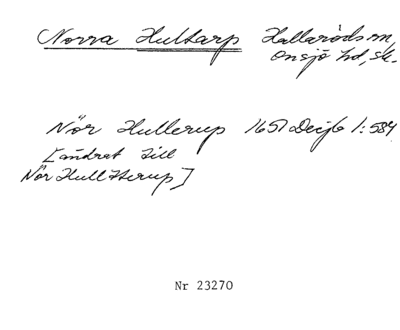 Norra Hultarp Hallaröds sn,
Onsjö hd, Sk.
Nör Hullerup 1651 DeijB 1:584
[ändrat till
Nör Hull Hterup]
Nr 23270